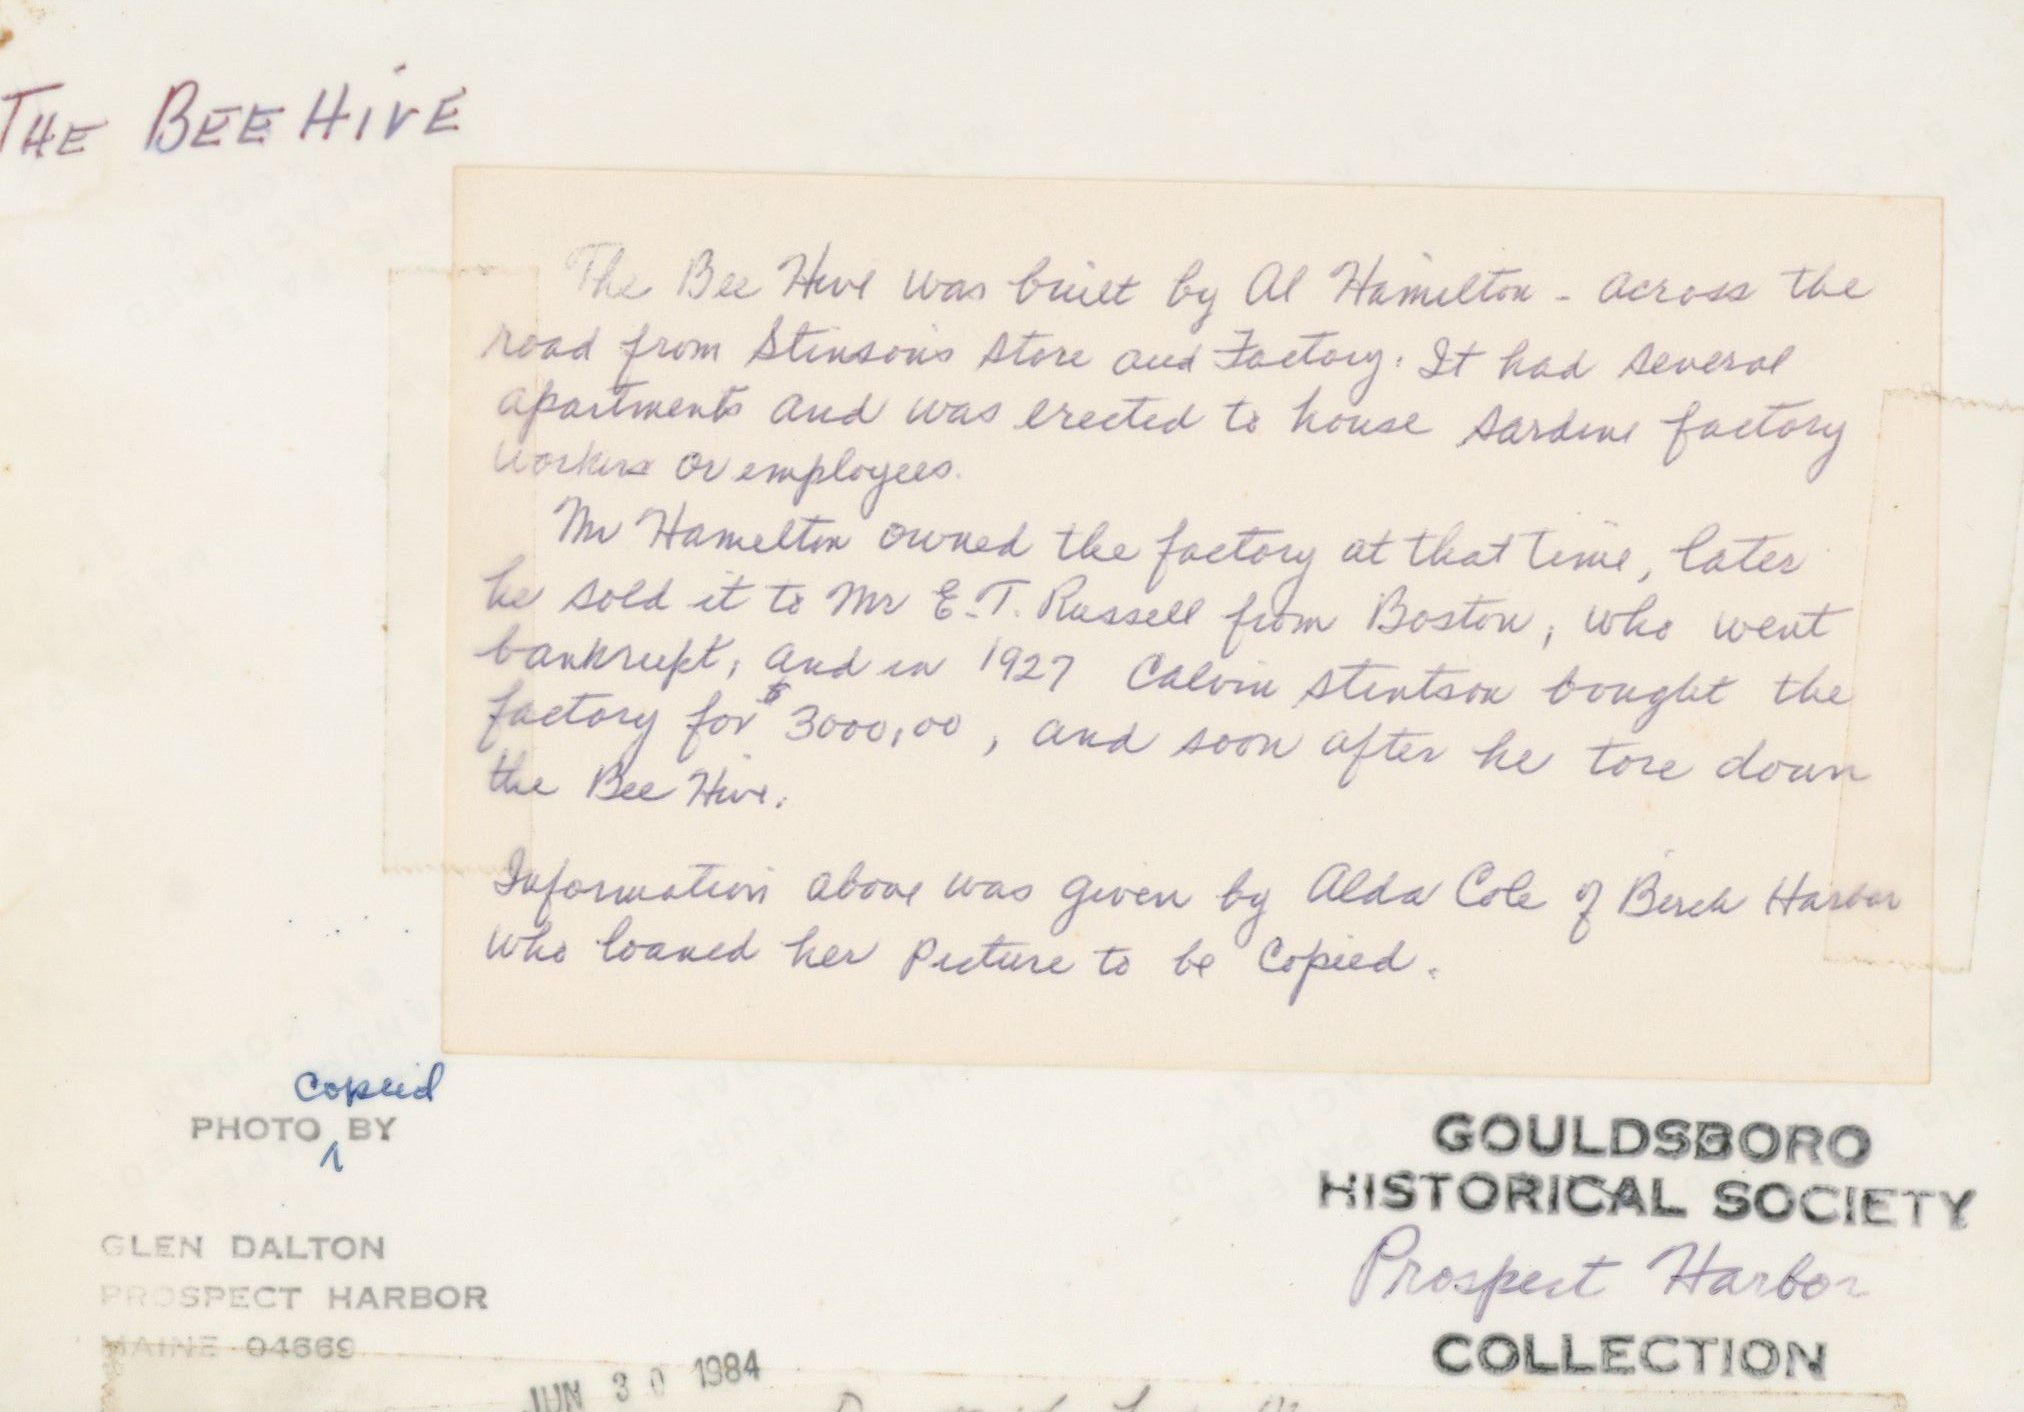 THE BEE HIVE
The Bee Hive was built by Al Hamilton - across the
road from Stinson's Store and Factory. It had several
apartments and was erected to house sardine factory
workers or employees.
Mr Hamelton owned the factory at that time, later
he sold it to Mr E.T. Russell from Boston, who went
bankrupt, and in 1927 Calvin Stintson bought the
factory for $3000,00, and soon after he tore down
the Bee Hive.
Information above was given by Alda Cole of Birch Harbor
who loaned her Picture to be Copied.
Copied
PHOTO BY
GLEN DALTON
PROSPECT HARBOR
MAINE 04669
JUN 30 1984
GOULDSBORO
HISTORICAL SOCIETY
Prospect Harbor
COLLECTION